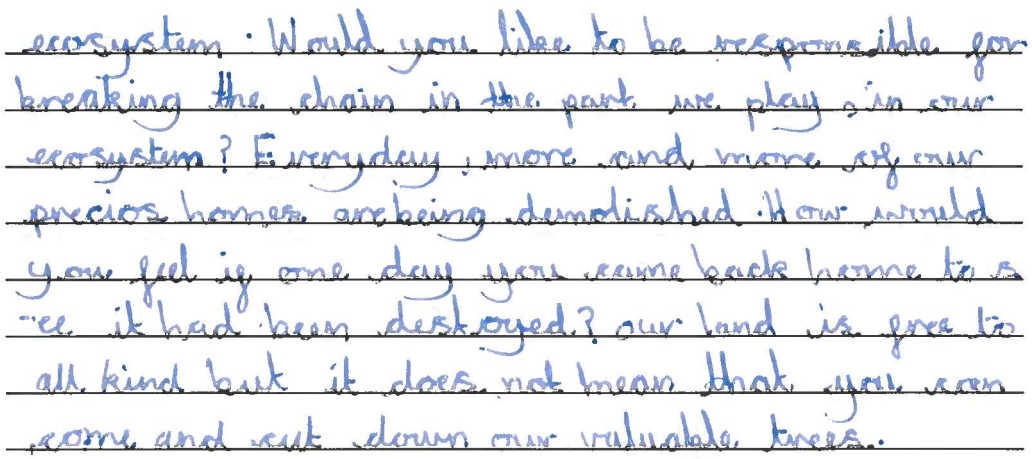 ecosystem. Would you like to be responsible for
breaking the chain in the part we play, in our
ecosystem? Everyday, more and more of our
precios homes are being demolished. How would
you feel if one day you came back home to s
-ee it had been destroyed? our land is free to
all kind but it does not mean that you can
come and cut down our valuable trees.